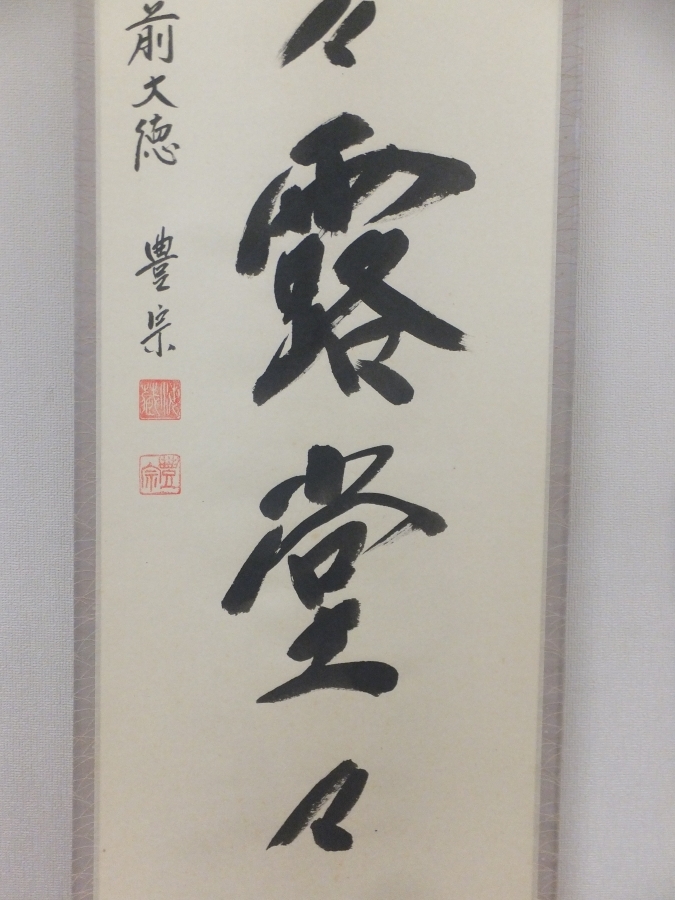 々露堂々
前大德 豊宗
豊宗